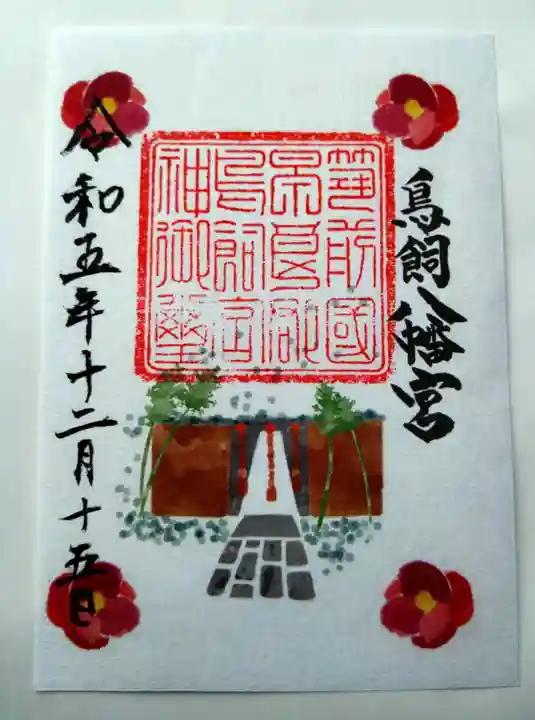 鳥飼八幡宮
筑前國
早良郡
鳥飼宮
神御璽
令和五年十二月十五日